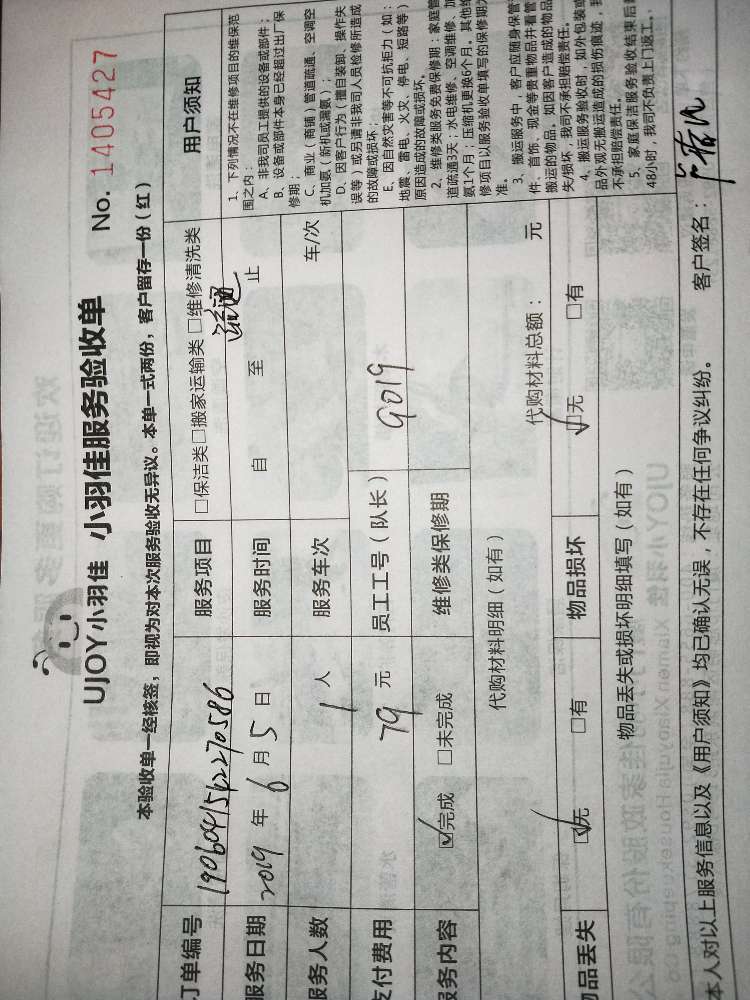 UJOY小羽佳 小羽佳服务验收单
No. 1405427
本验收单一经核签，即视为对本次服务验收无异议。本单一式两份，客户留存一份（红）
订单编号 1906041562270586 服务项目 □保洁类□搬家运输类 □维修清洗类
疏通
服务日期 2019 年 6 月 5 日 服务时间 自 至 止
服务人数 1 人 服务车次 车/次
支付费用 79 元 员工工号（队长） 9019
服务内容 ☑完成 □未完成 维修类保修期
代购材料明细（如有） 代购材料总额： 元
物品丢失 ☑无 □有 物品损坏 ☑无 □有
物品丢失或损坏明细填写（如有）
用户须知
1、下列情况不在维修项目的维保范
围之内：
A、非我司员工提供的设备或部件；
B、设备或部件本身已经超过出厂保
修期；
C、商业（商铺）管道疏通、空调空
机加氨（新机或漏氨）；
D、因客户行为（擅自装卸、操作失
误等）或另请非我司人员检修所造成
的故障或损坏；
E、因自然灾害等不可抗拒力（如：
地震、雷电、火灾、停电、短路等）
原因造成的故障或损坏。
2、维修类服务免费保修期：家庭管
道疏通3天；水电维修、空调维修、加
氨1个月；压缩机更换6个月。其他维
修项目以服务验收单填写的保修期为
准。
3、搬运服务中，客户应随身保管
件、首饰、现金等贵重物品并看管
搬运的物品，如因客户造成的物品
失/损坏，我司不承担赔偿责任。
4、搬运服务验收时，如外包装或
品外观无搬运造成的损伤痕迹，我
不承担赔偿责任。
5、家庭保洁服务验收结束后超
48小时，我司不负责上门返工。
本人对以上服务信息以及《用户须知》均已确认无误，不存在任何争议纠纷。 客户签名：